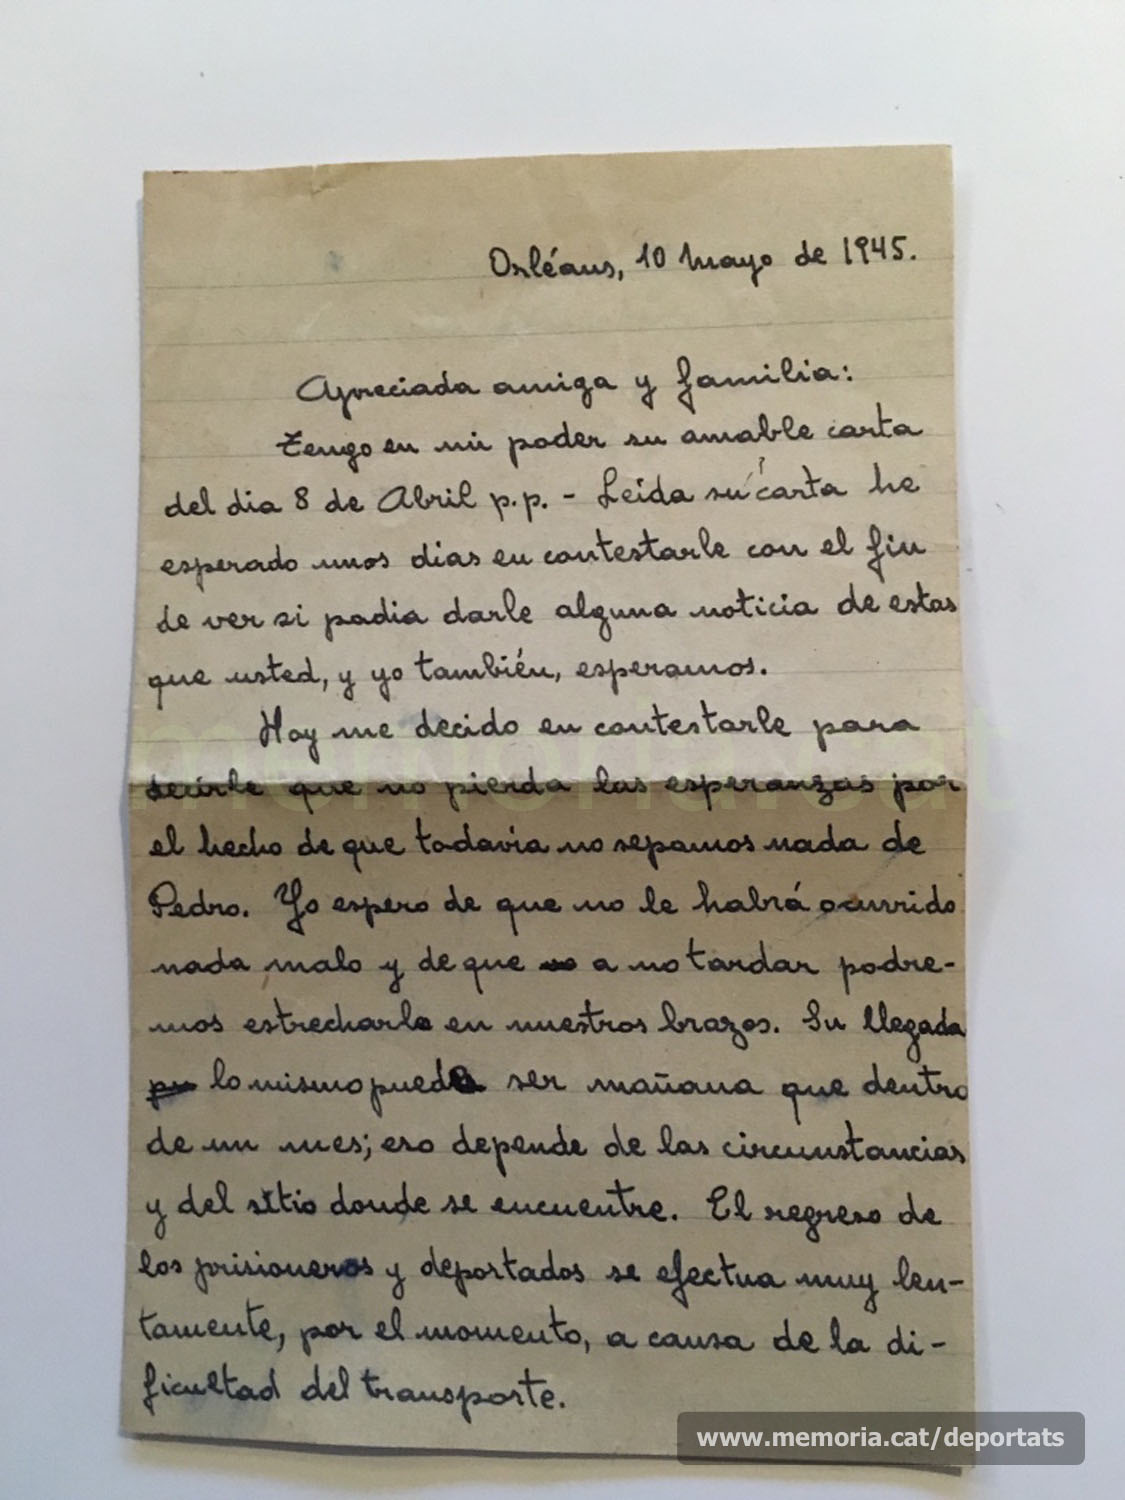 Orléans, 10 Mayo de 1945.
Apreciada amiga y familia:
Tengo en mi poder su amable carta
del dia 8 de Abril p.p. - Leída su carta he
esperado unos dias en contestarle con el fin
de ver si podia darle alguna noticia de estas
que usted, y yo también, esperamos.
Hoy me decido en contestarle para
decirle que no pierda las esperanzas por
el hecho de que todavia no sepamos nada de
Pedro. Yo espero de que no le habrá ocurrido
nada malo y de que a no tardar podre-
mos estrecharle en nuestros brazos. Su llegada
lo mismo puede ser mañana que dentro
de un mes; eso depende de las circunstancias
y del sitio donde se encuentre. El regreso de
los prisioneros y deportados se efectua muy len-
tamente, por el momento, a causa de la di-
ficultad del transporte.
memoria.cat
www.memoria.cat/deportats